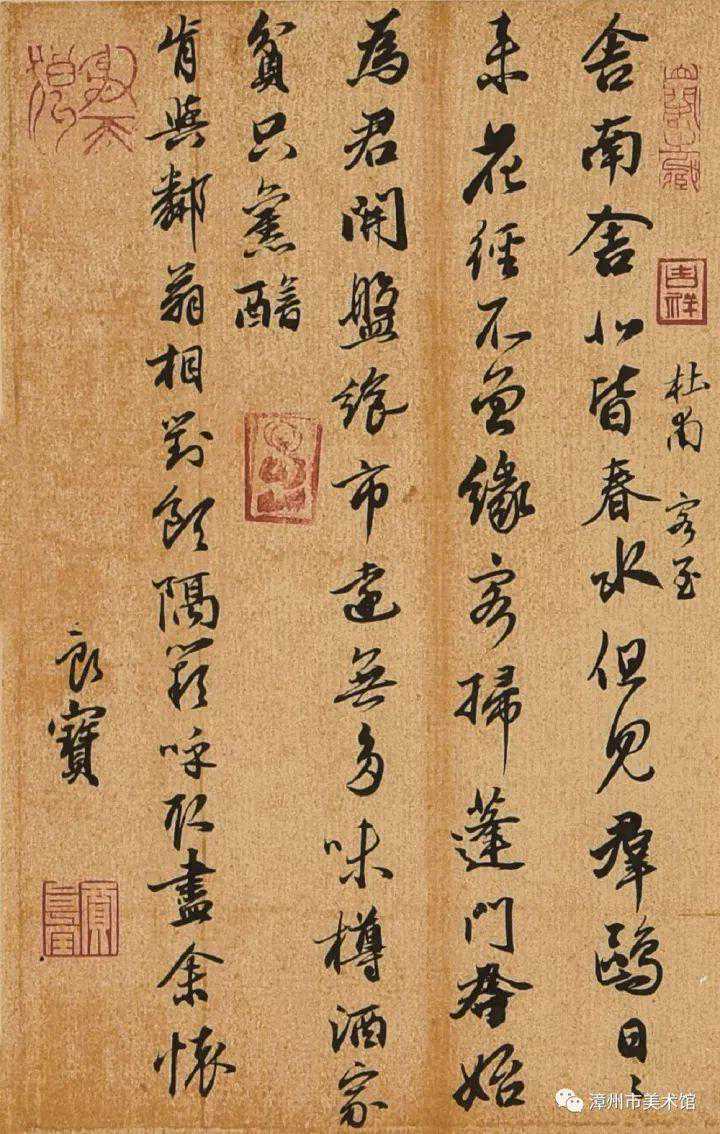 吉祥
杜甫 客至
舍南舍北皆春水但見羣鷗日〻
来花徑不曾緣客掃蓬門始
為君開盤飧市遠無多味樽酒家
貧只舊醅
肯與鄰翁相對飲隔籬呼取盡余懷
良寶
漳州市美术馆